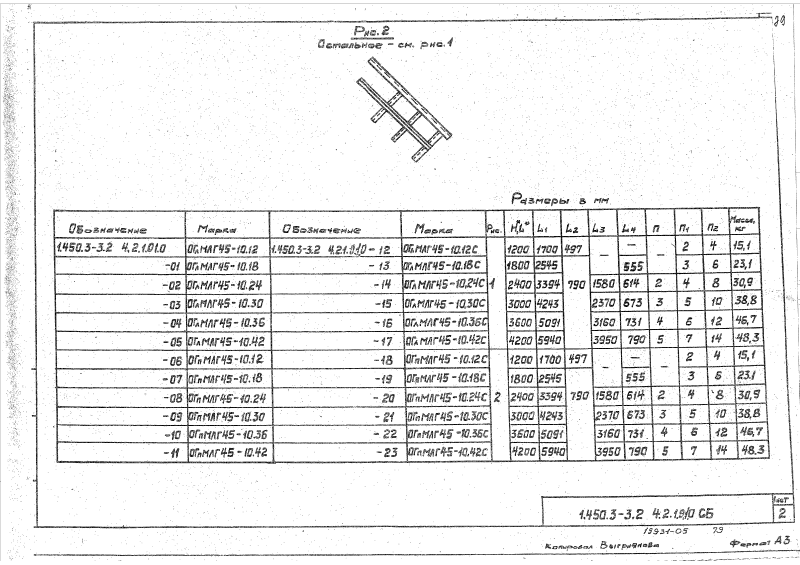 29
Рис. 2
Остальное – см. рис. 1
Размеры в мм
Обозначение Марка Обозначение Марка Рис. H, L* L1 L2 L3 L4 п п1 п2 Масса, кг
1.450.3-3.2 4.2.1.01.0 ОГлМЛГ45-10.12 1.450.3-3.2 4.2.1.01.0 - 12 ОГлМЛГ45-10.12С 1200 1700 497 — — — 2 4 15,1
-01 ОГлМЛГ45-10.18 -13 ОГлМЛГ45-10.18С 1800 2545 555 3 6 23,1
-02 ОГлМЛГ45-10.24 -14 ОГлМЛГ45-10.24С 1 2400 3394 790 1580 614 2 4 8 30,9
-03 ОГлМЛГ45-10.30 -15 ОГлМЛГ45-10.30С 3000 4243 2370 673 3 5 10 38,8
-04 ОГлМЛГ45-10.36 -16 ОГлМЛГ45-10.36С 3600 5091 3160 731 4 6 12 46,7
-05 ОГлМЛГ45-10.42 -17 ОГлМЛГ45-10.42С 4200 5940 3950 790 5 7 14 48,3
-06 ОГпМЛГ45-10.12 -18 ОГпМЛГ45-10.12С 1200 1700 497 — — — 2 4 15,1
-07 ОГпМЛГ45-10.18 -19 ОГпМЛГ45-10.18С 1800 2545 555 3 6 23,1
-08 ОГпМЛГ45-10.24 -20 ОГпМЛГ45-10.24С 2 2400 3394 790 1580 614 2 4 8 30,9
-09 ОГпМЛГ45-10.30 -21 ОГпМЛГ45-10.30С 3000 4243 2370 673 3 5 10 38,8
-10 ОГпМЛГ45-10.36 -22 ОГпМЛГ45-10.36С 3600 5091 3160 731 4 6 12 46,7
-11 ОГпМЛГ45-10.42 -23 ОГпМЛГ45-10.42С 4200 5940 3950 790 5 7 14 48,3
1.450.3-3.2 4.2.1.01.0 СБ
Лист
2
15931-05 29
Копировал
Формат А3